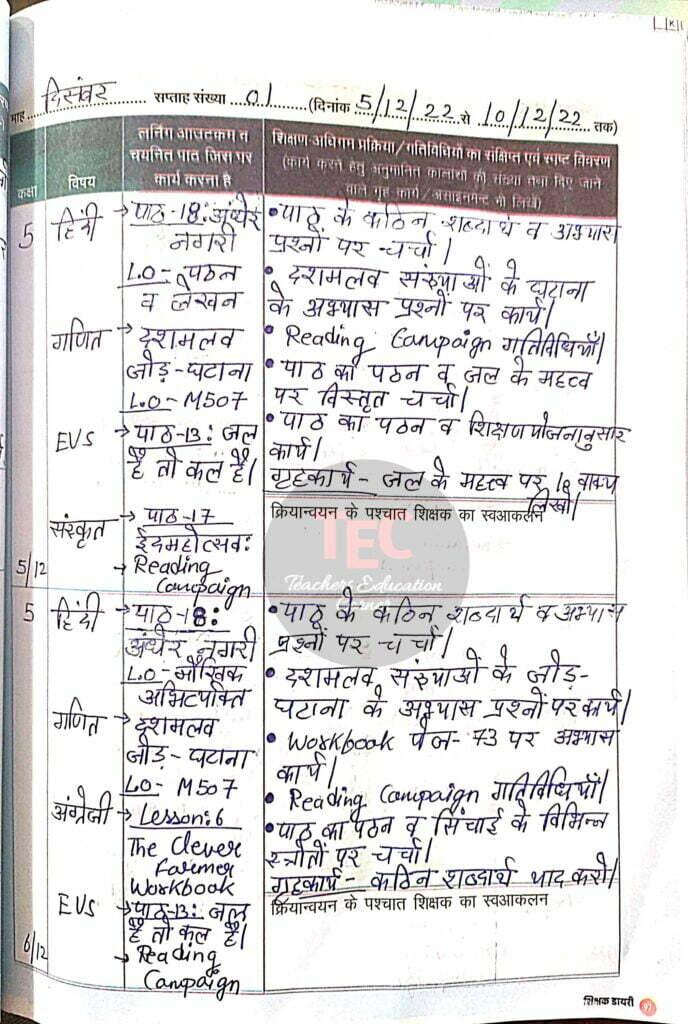 माह दिसंबर सप्ताह संख्या 01 (दिनांक 5/12/22 से 10/12/22 तक)
कक्षा
विषय
लर्निंग आउटकम व
चयनित पाठ जिस पर
कार्य करना है
शिक्षण अधिगम प्रक्रिया/गतिविधियों का संक्षिप्त एवं स्पष्ट विवरण
(कार्य करने हेतु अनुमानित कालांशों की संख्या तथा दिए जाने
वाले गृह कार्य/असाइनमेन्ट भी लिखें)
5
हिंदी
→ पाठ-18: अंधेर
नगरी
L.O- पठन
व लेखन
गणित
→ दशमलव
जोड़-घटाना
L.O- M507
EVS
→ पाठ-13: जल
है तो कल है।
संस्कृत
→ पाठ-17
ईदमहोत्सव:
→ Reading
Campaign
5/12
• पाठ के कठिन शब्दार्थ व अभ्यास
प्रश्नों पर चर्चा।
• दशमलव संख्याओं के घटाना
के अभ्यास प्रश्नों पर कार्य।
• Reading Campaign गतिविधियाँ।
• पाठ का पठन व जल के महत्व
पर विस्तृत चर्चा।
• पाठ का पठन व शिक्षण योजनानुसार
कार्य।
गृहकार्य- जल के महत्व पर वाक्य
लिखो।
क्रियान्वयन के पश्चात शिक्षक का स्वआकलन
TEC
Teachers Education
Corner
5
हिंदी
→ पाठ-18:
अंधेर नगरी
L.O- मौखिक
अभिव्यक्ति
गणित
→ दशमलव
जोड़-घटाना
LO- M507
अंग्रेजी
→ Lesson: 6
The Clever
Farmer
Workbook
EVS
→ पाठ-13: जल
है तो कल है।
→ Reading
Campaign
6/12
• पाठ के कठिन शब्दार्थ व अभ्यास
प्रश्नों पर चर्चा।
• दशमलव संख्याओं के जोड़-
घटाना के अभ्यास प्रश्नों पर कार्य।
• Workbook पेज- 73 पर अभ्यास
कार्य।
• Reading Campaign गतिविधियाँ।
• पाठ का पठन व सिंचाई के विभिन्न
स्त्रोतों पर चर्चा।
गृहकार्य- कठिन शब्दार्थ याद करो।
क्रियान्वयन के पश्चात शिक्षक का स्वआकलन
शिक्षक डायरी